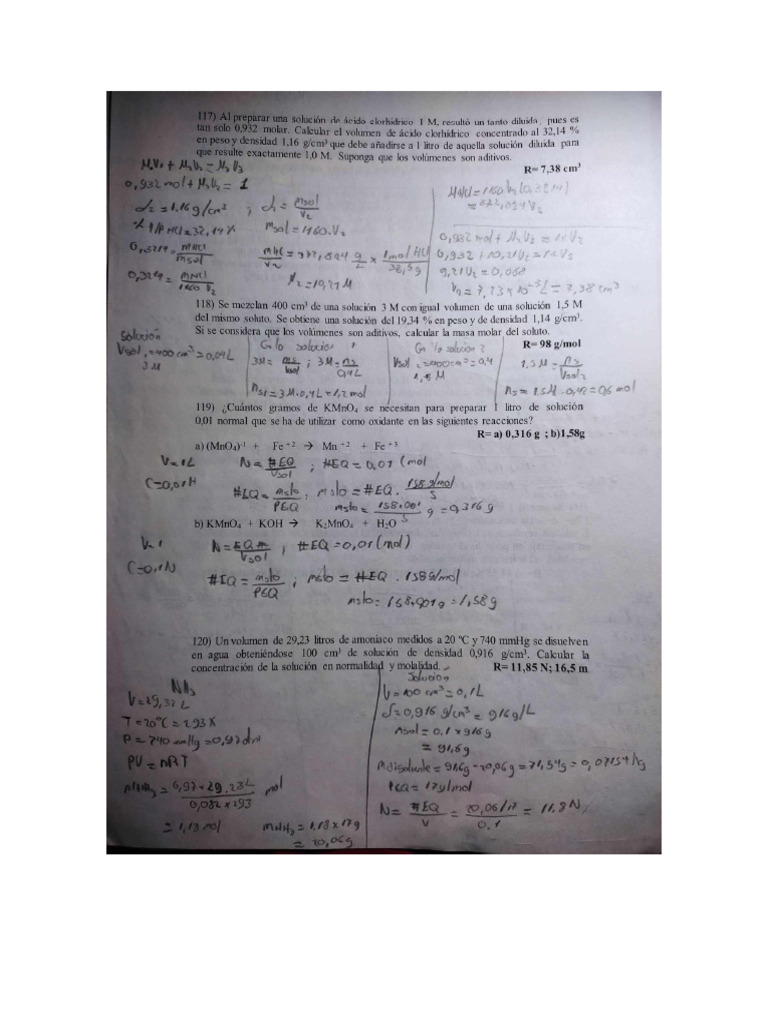 117) Al preparar una solución de ácido clorhídrico 1 M, resultó un tanto diluida, pues es
tan solo 0,932 molar. Calcular el volumen de ácido clorhídrico concentrado al 32,14 %
en peso y densidad 1,16 g/cm³ que debe añadirse a 1 litro de aquella solución diluida para
que resulte exactamente 1,0 M. Suponga que los volúmenes son aditivos.
R= 7,38 cm³
M₁V₁ + M₂V₂ = M₃V₃
0,932 mol + M₂V₂ = 1
d₂ = 1.16 g/cm³ ; d₁ = msol/V₂
% P/P HCl = 32,14% msol = 1160.V₂
0,3214 = mHCl/msol
mHCl/V₂ = 372,824 g/L x 1 mol HCl/36,5g
= mHCl/1160 V₂
M₂ = 10,21 M
mHCl = 1160 V₂ (0,3214)
= 372,824 V₂
0,932 mol + M₂V₂ = 1+V₂
0,932 + 10,21V₂ = 1+V₂
9,21V₂ = 0,068
V₂ = 7,38 cm³
118) Se mezclan 400 cm³ de una solución 3 M con igual volumen de una solución 1,5 M
del mismo soluto. Se obtiene una solución del 19,34 % en peso y densidad 1,14 g/cm³.
Si se considera que los volúmenes son aditivos, calcular la masa molar del soluto.
R= 98 g/mol
Solución
Vsol₁ = 400 cm³ = 0,04L
3 M
En la solución 1
3M = ns/Vsol ; 3M = ns/0,4L
ns₁ = 3M . 0,4L = 1,2 mol
En la solución 2
Vsol₂ = 400 cm³ = 0,4
1,5 M
1,5M = ns/Vsol₂
ns = 1.5M . 0,42 = 0,6 mol
119) ¿Cuántos gramos de KMnO₄ se necesitan para preparar 1 litro de solución
0,01 normal que se ha de utilizar como oxidante en las siguientes reacciones?
R= a) 0,316 g ; b)1,58g
a) (MnO₄)⁻¹ + Fe⁺² → Mn⁺² + Fe⁺³
V = 1L N = #EQ/Vsol ; #EQ = 0,01 (mol
C = 0,01 N
#EQ = msto/PEQ ; msto = #EQ . 158 g/mol/5
msto = 158.001/5 g = 0,316 g
b) KMnO₄ + KOH → K₂MnO₄ + H₂O
V = 1 N = #EQ/Vsol ; #EQ = 0,01 (mol)
C = 0,1 N
#EQ = msto/PEQ ; msto = #EQ . 158 g/mol
msto = 158.001g = 1,58 g
120) Un volumen de 29,23 litros de amoniaco medidos a 20 ºC y 740 mmHg se disuelven
en agua obteniéndose 100 cm³ de solución de densidad 0,916 g/cm³. Calcular la
concentración de la solución en normalidad y molalidad.
R= 11,85 N; 16,5 m
NH₃
V = 29,32 L
T = 20°C = 293 K
P = 740 mmHg = 0,97 atm
PV = nRT
nNH₃ = 0,97 . 29,23L/0,082 x 293 mol
= 1,18 mol mNH₃ = 1,18 x 17g
= 20,06g
Solución
V = 100 cm³ = 0,1L
δ = 0,916 g/cm³ = 916 g/L
msol = 0,1 x 916g
= 91,6g
mdisolvente = 91,6g - 20,06g = 71,54g = 0,07154 kg
PEQ = 17g/mol
N = #EQ/V = 20,06/17/0.1 = 11.8 N